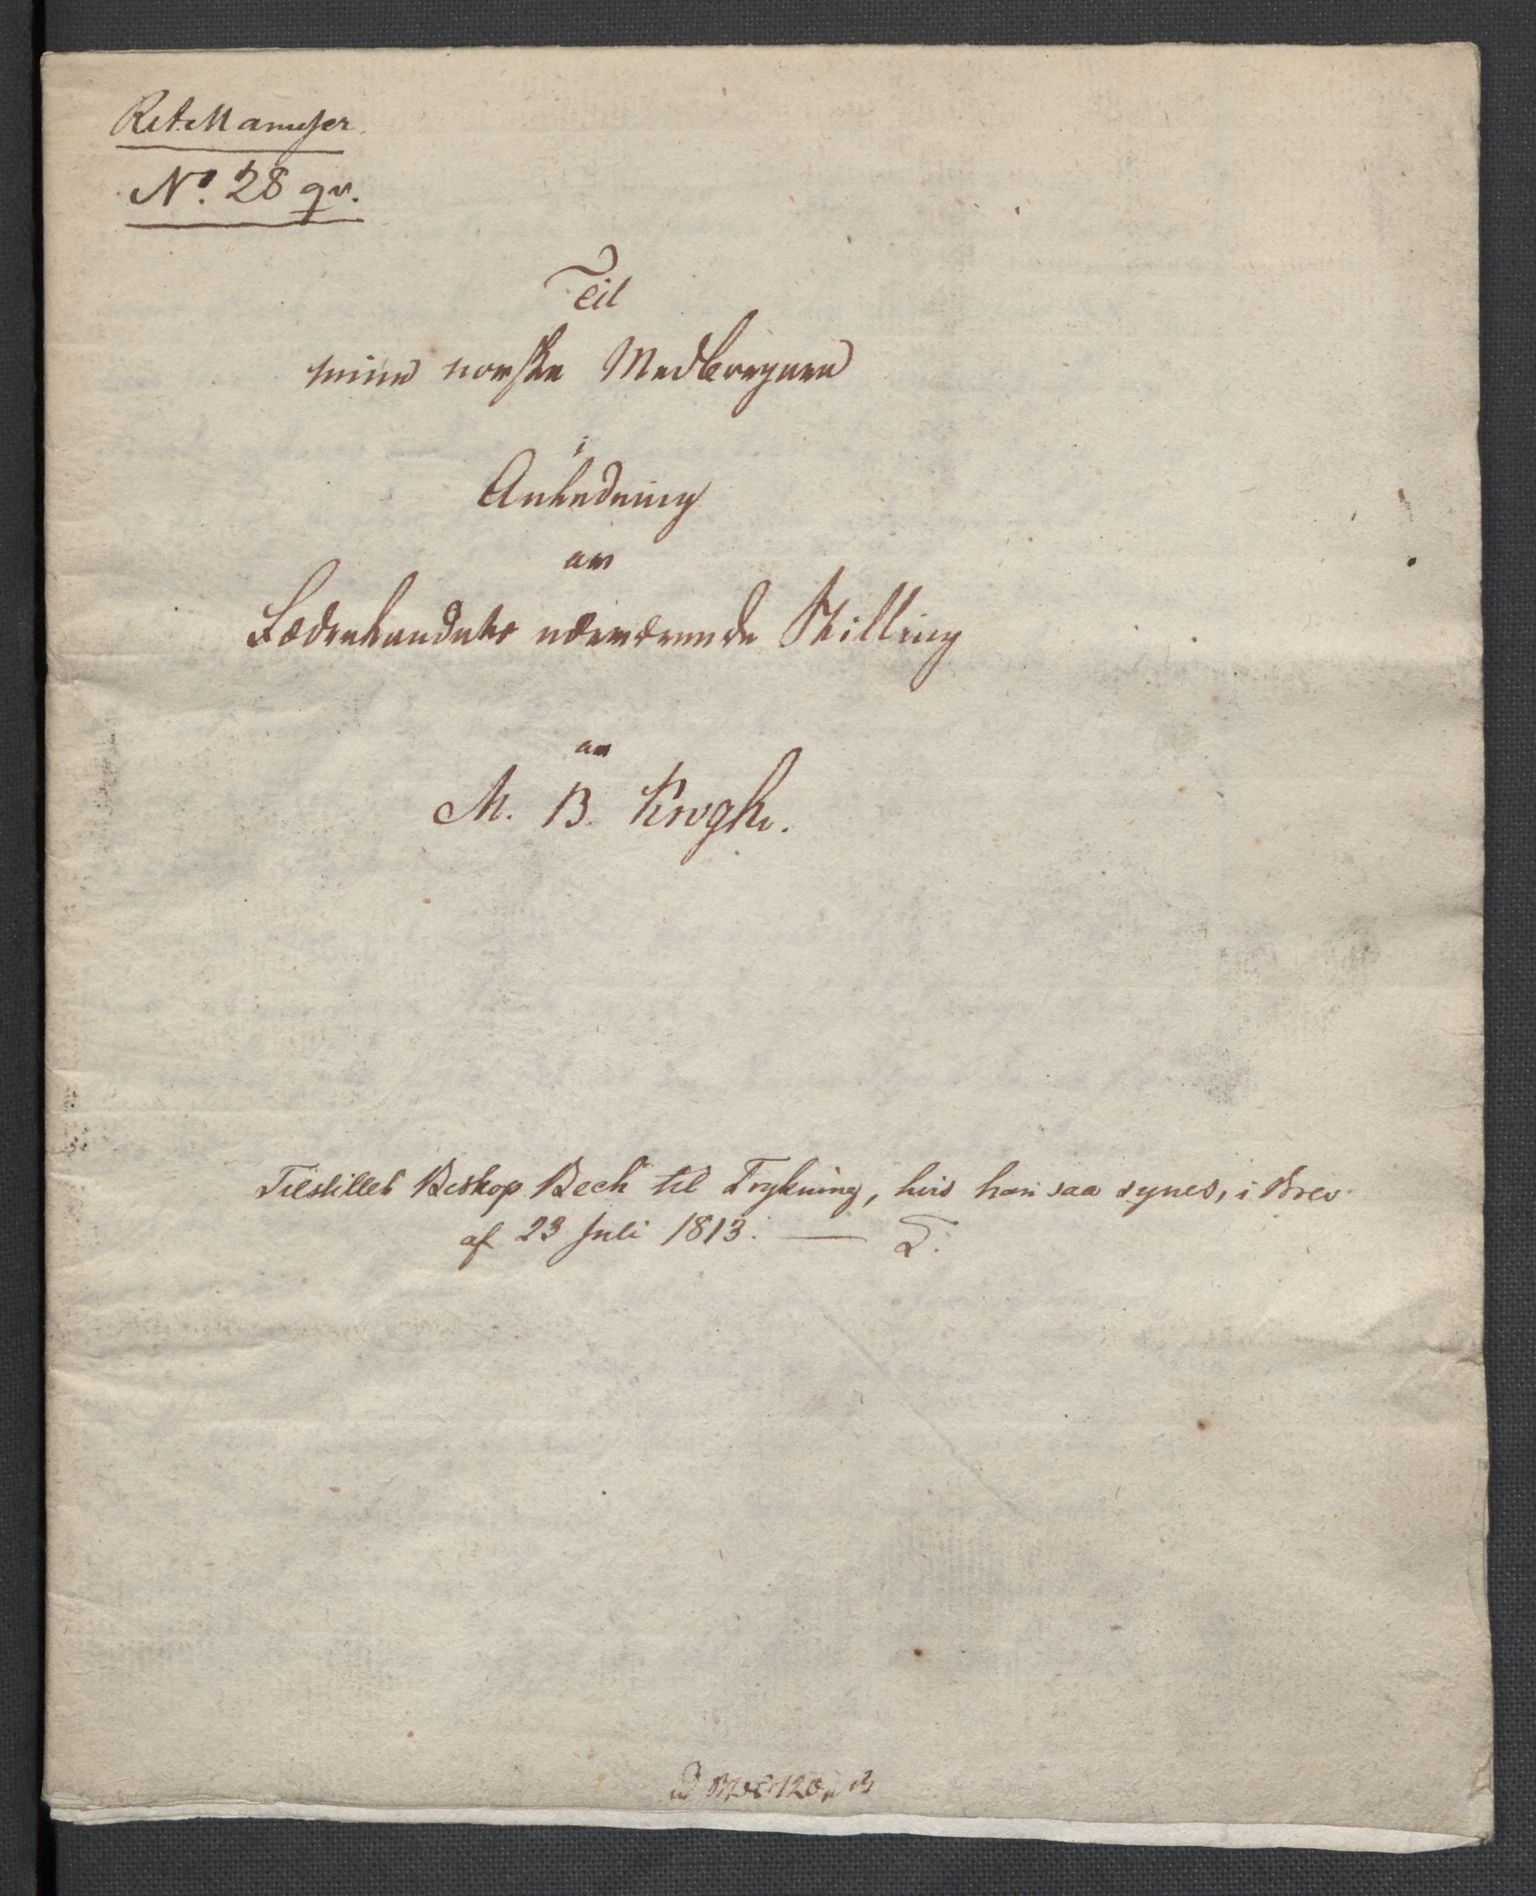 Ret. Manuscr.
No. 28 qv.
Til
mine norske Medborgere
i
Anledning
av
Fædrelandets nærværende Stilling
av
M. B. Krogh.
Tilstillet Biskop Bech til Trykning, hvis han saa synes, i Brev
af 23 Juli 1813. —